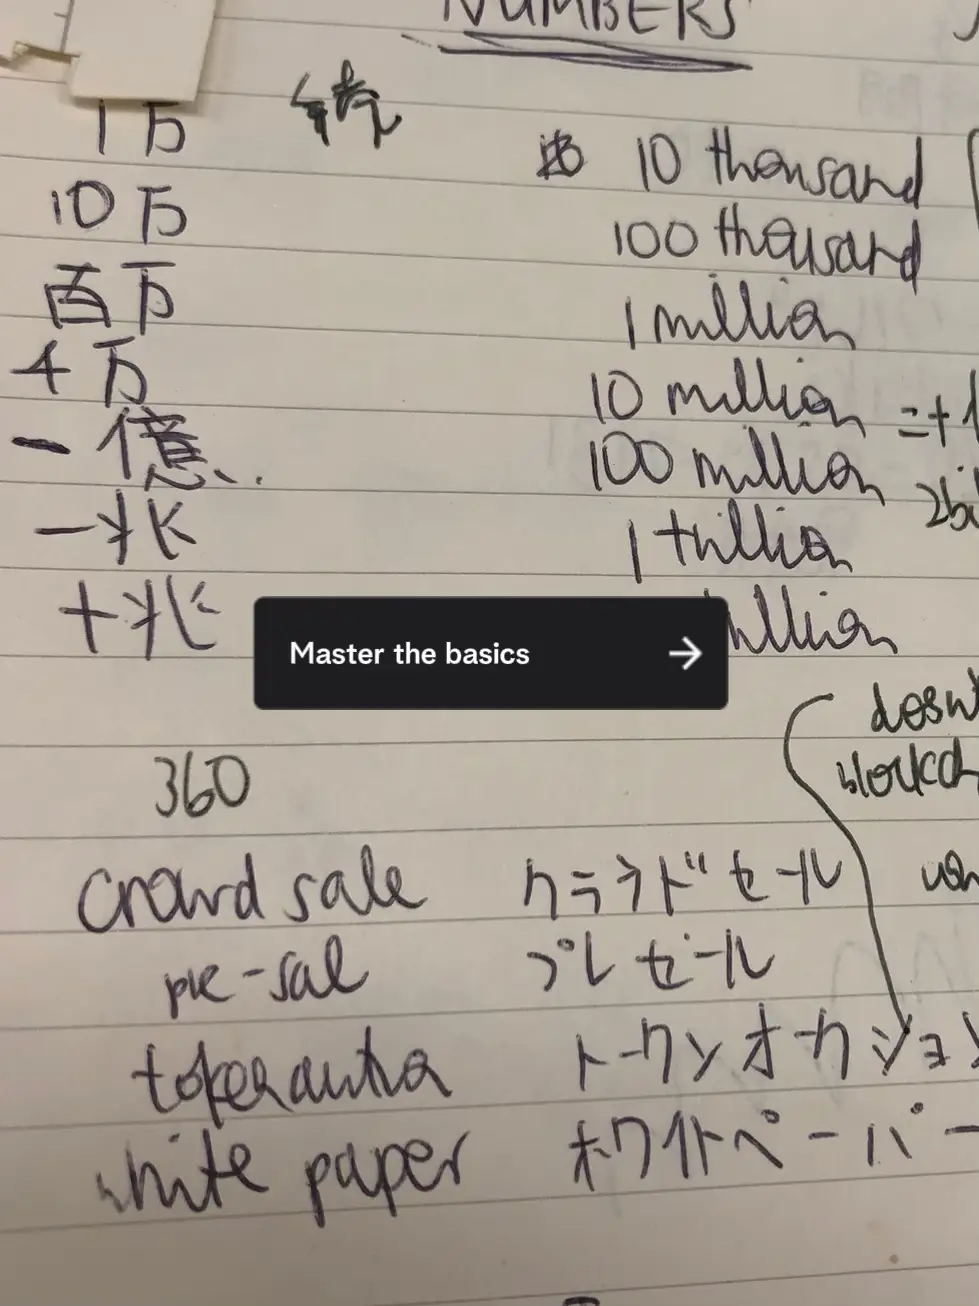 NUMBERS
1万 10 thousand
10万 100 thousand
百万 1 million
千万 10 million = +
一億 100 million
一兆 1 trillion
十兆
Master the basics →
360
crowd sale クラウドセール
pre-sal プレセール
トークンオークション
white paper ホワイトペーパー